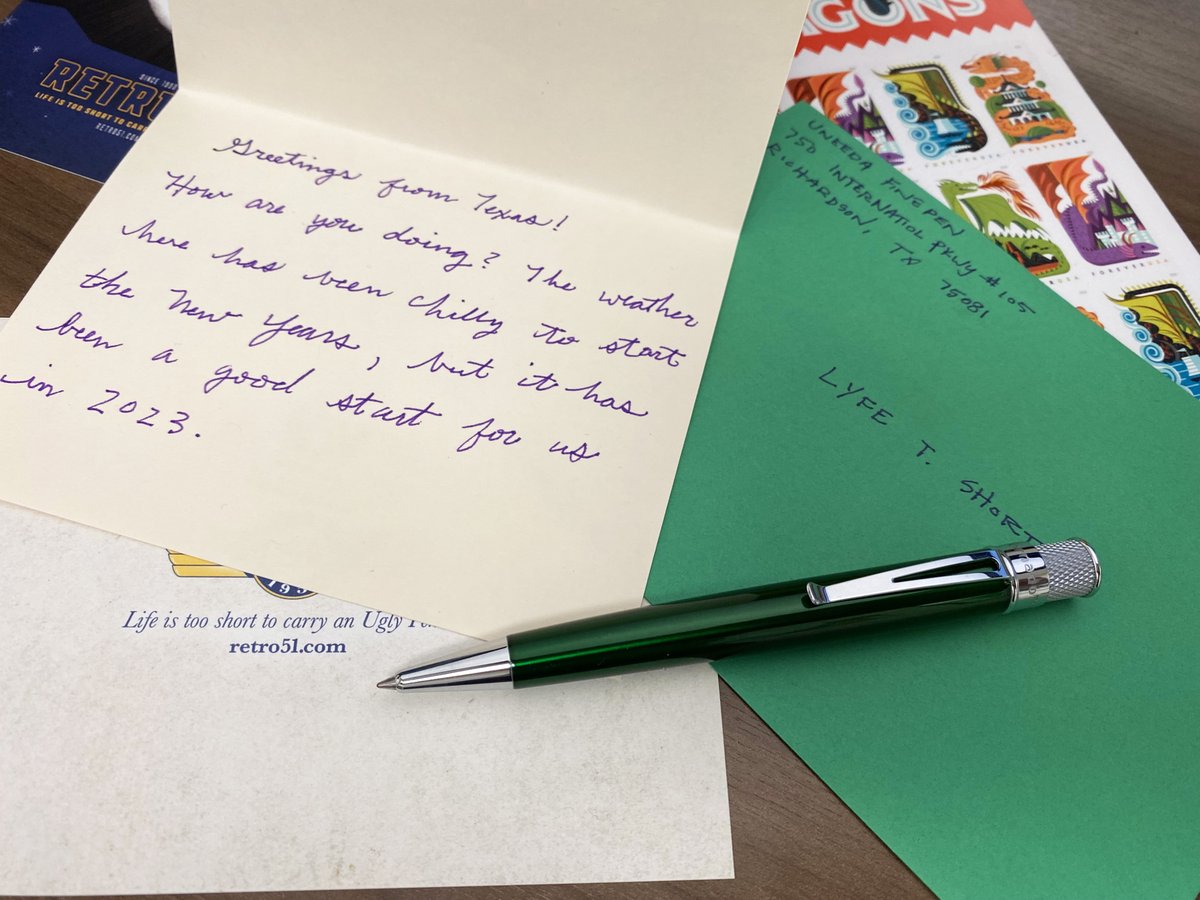 AGONS
SINCE 1990
RETRO
LIFE IS TOO SHORT TO CARRY
RETRO51.COM
Greetings from Texas!
How are you doing? The weather
here has been chilly to start
the New Years, but it has
been a good start for us
in 2023.
UNEEDA FINEPEN
750 INTERNATIOL PKWY #105
RICHARDSON, TX
75081
LYFE T. SHORT
FOREVER USA
FOREVER USA
Life is too short to carry an Ugly Pen
retro51.com